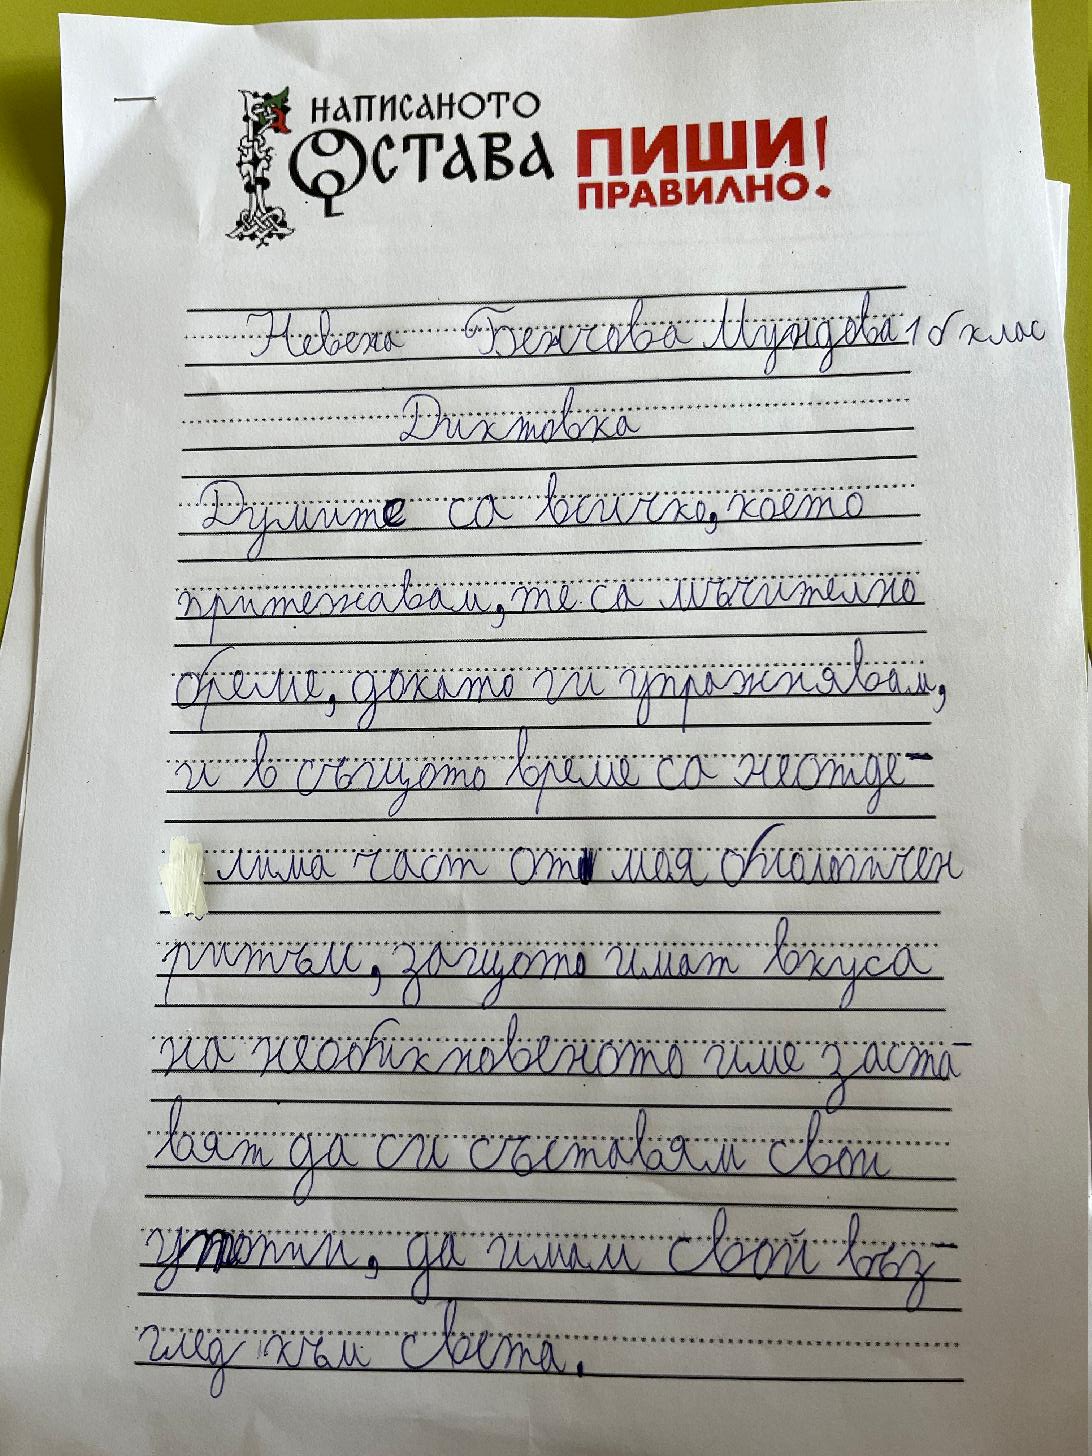 НАПИСАНОТО
ОСТАВА
ПИШИ!
ПРАВИЛНО
Невена Бенчова Мундова 1 б клас
Диктовка
Думите са всичко, което
притежавам, те са мъчително
бреме, докато ги упражнявам,
и в същото време са неотде-
лима част от моя биологичен
ритъм, защото имат вкуса
на необикновеното име заста-
вят да си съставям свои
утопии, да имам свой въз-
глед към света.